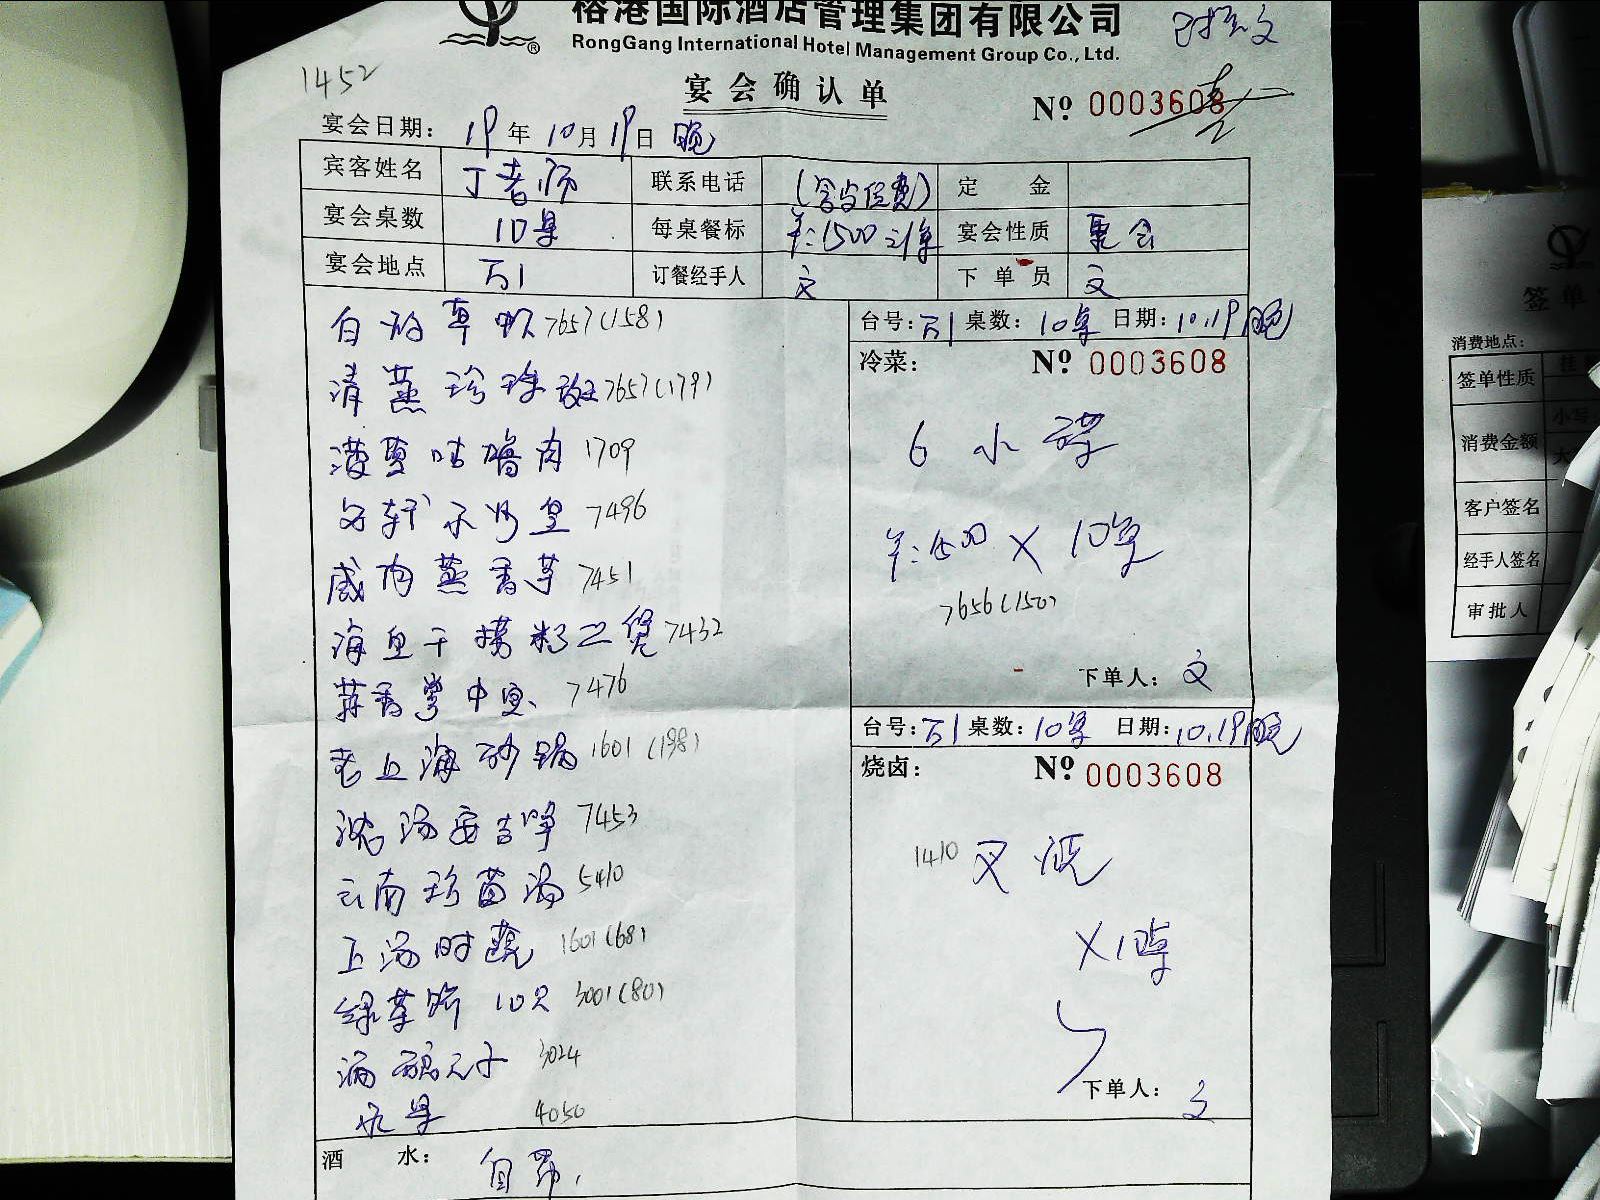 榕港国际酒店管理集团有限公司
RongGang International Hotel Management Group Co., Ltd.
1452
宴会确认单
№ 0003608
宴会日期: 19年10月19日 晚
宾客姓名 丁老师 联系电话 定金
宴会桌数 10桌 每桌餐标 ¥:1500元/桌 宴会性质 聚会
宴会地点 万1 订餐经手人 文 下单员 文
7657(158)
清蒸珍珠斑 7657(179)
菠萝咕噜肉 1709
7496
咸肉蒸香芋 7451
7432
蒜香掌中宝 7476
老上海砂锅 1601(198)
浓汤 7453
云南珍菌汤 5410
上汤时蔬 1601(68)
绿茶饼 10只 3001(80)
酒酿元子 3024
水果 4050
酒水: 自带
台号: 万1 桌数: 10桌 日期: 10.19晚
冷菜: № 0003608
6 小碟
¥:1500 X 10桌
7656(150)
下单人: 文
台号: 万1 桌数: 10桌 日期: 10.19晚
烧卤: № 0003608
1410
下单人: 文
签单
消费地点:
签单性质
消费金额 小写
大
客户签名
经手人签名
审批人